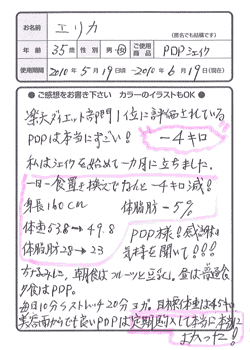 お名前
エリカ
(匿名でも結構です)
年齢 35歳 性別 男・女 ご使用商品 PDPシェイク
使用期間 2010年5月19日頃~2010年6月19日(現在)
●ご感想をお書き下さい カラーのイラストもOK●
楽天ダイエット部門1位に評価されている
PDPは本当にすごい!
-4キロ
私はシェイクを始めて一カ月に立ちました。
一日一食置き換えでなんと-4キロ減!
身長160cm
体脂肪-5%
体重53.8→49.8
体脂肪28→23
PDP様!感謝の
気持を聞いて!!!
ちなみに、朝食はフルーツと豆乳、昼は普通食
夕食はPDP。
毎日10分ストレッチ20分ヨガ。目標体重は45キロ
美容面からでも良いPDPは定期購入して本当に本当に
よかった!